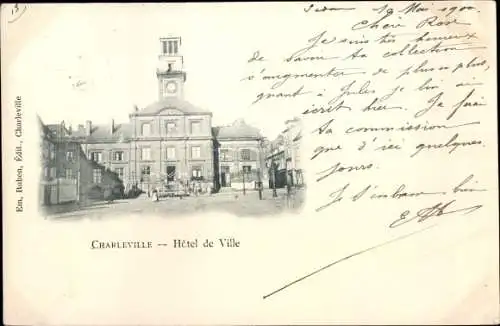 Sedan, 19 Mai 1900
Chère Rose
Je suis très heureux
de savoir ta collection
s'augmenter de plus en plus,
quant à Jules je lui ai
écrit hier. J'ai
ta commission
que d'ici quelques
jours.
Je t'embrasse bien
Em. Dubon, Édit., Charleville
CHARLEVILLE — Hôtel de Ville